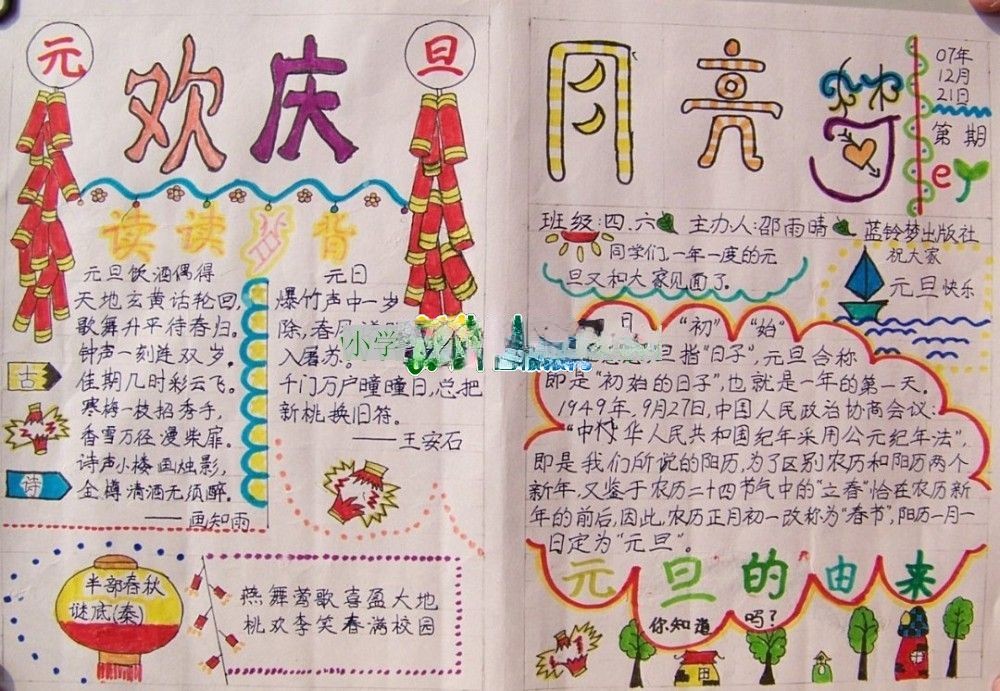 元
旦
欢庆
读读背背
元旦饮酒偶得
天地玄黄诂轮回,
歌舞升平待春归。
钟声一刻连双岁,
佳期几时彩云飞。
寒梅一枝招秀手,
香雪万径漫柴扉。
诗声小楼画烛影,
金樽清酒无须醉。
——画知雨
古
诗
元日
爆竹声中一岁
除,春风送
入屠苏。
千门万户曈曈日,总把
新桃换旧符。
——王安石
半部春秋
谜底(秦)
燕舞莺歌喜盈大地
桃欢李笑春满校园
月亮
07年
12月
21日
第 期
班级:四.六 主办人:邵雨晴 蓝铃梦出版社
同学们,一年一度的元
旦又和大家见面了。
祝大家
元旦快乐
“初” “始”
旦指“日子”,元旦合称
即是“初始的日子”,也就是一年的第一天。
1949年,9月27日,中国人民政治协商会议:
“中华人民共和国纪年采用公元纪年法”,
即是我们所说的阳历,为了区别农历和阳历两个
新年,又鉴于农历二十四节气中的“立春”恰在农历新
年的前后,因此,农历正月初一改称为“春节”,阳历一月一
日定为“元旦”。
元旦的由来
你知道吗?
小学